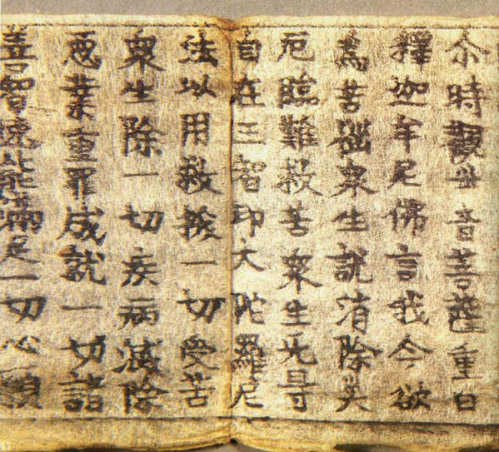 尒時觀世音菩薩重白
釋迦牟尼佛言我今欲
爲苦惱衆生說消除災
厄臨難救苦衆生无㝵
自在王智印大陀羅尼
法以用救拔一切受苦
衆生除一切疾病滅除
惡業重罪成就一切諸
善智速能滿足一切心願